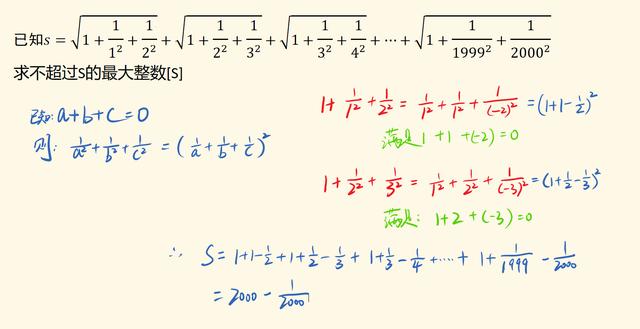 已知s = √(1 + 1/1² + 1/2²) + √(1 + 1/2² + 1/3²) + √(1 + 1/3² + 1/4²) + ··· + √(1 + 1/1999² + 1/2000²)
求不超过S的最大整数[S]
已知: a+b+c=0
则: 1/a² + 1/b² + 1/c² = (1/a + 1/b + 1/c)²
1 + 1/1² + 1/2² = 1/1² + 1/1² + 1/(-2)² = (1+1-1/2)²
满足 1+1+(-2)=0
1 + 1/2² + 1/3² = 1/1² + 1/2² + 1/(-3)² = (1+1/2-1/3)²
满足: 1+2+(-3)=0
∴ S = 1+1-1/2+1+1/2-1/3+ 1+1/3-1/4+····+ 1+1/1999 - 1/2000
= 2000 - 1/2000